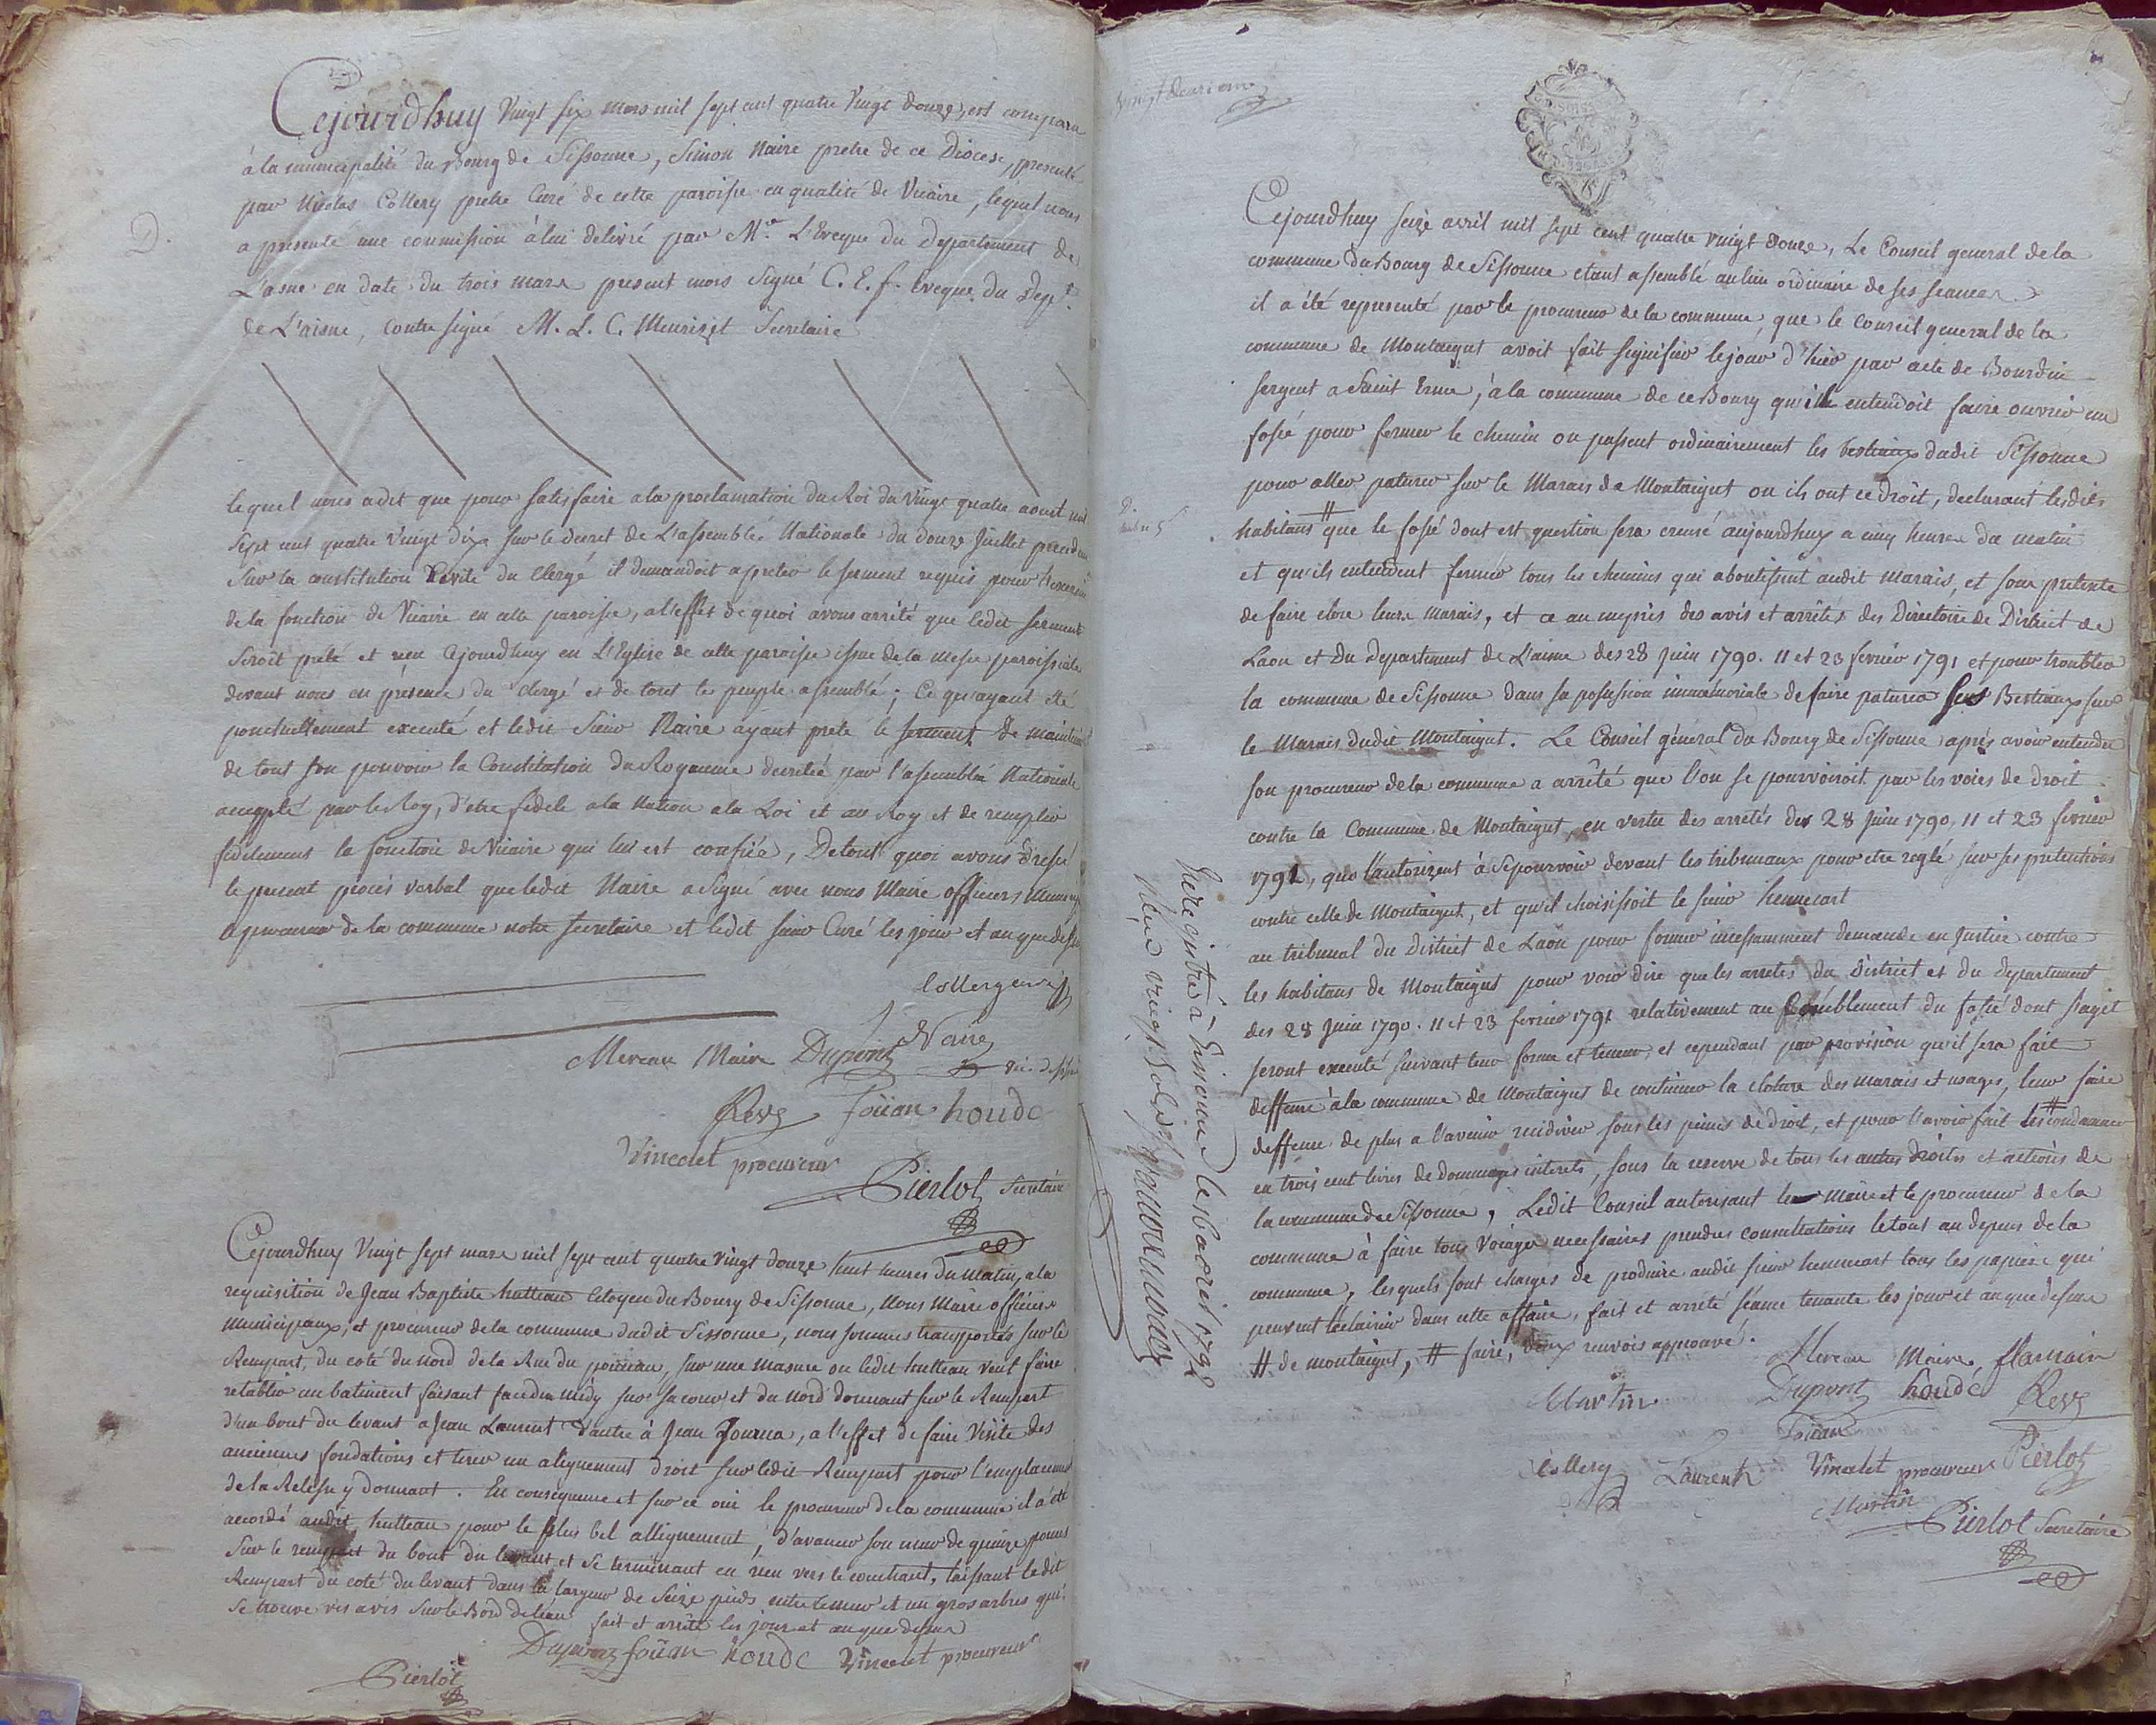 Cejourdhuy Vingt six mars mil sept cent quatre Vingt douze, est comparu
à la municipalité du Bourg de Sissonne, Simon Naire pretre de ce Diocese, presenté
par Nicolas Collery pretre Curé de cette paroisse en qualité de Vicaire, lequel nous
D.
a presenté une commission à lui delivré par Mr. L'Eveque du Departement de
L'aisne en date du trois mars present mois Signé C. E. f. Eveque du Dept.
de L'aisne, contre signé M. L. C. Meurizet Secretaire
lequel nous a dit que pour satisfaire a la proclamation du Roi du Vingt quatre aoust mil
Sept cent quatre Vingt dix sur le decret de L'assemblée Nationale du douze Juillet precedent
Sur la constitution Civile du Clergé il demandoit a preter le serment requis pour l'exercice
de la fonction de Vicaire en cette paroisse, a l'effet de quoi avons arrêté que ledit serment
Seroit preté et reçu Cejourdhuy en L'Eglise de cette paroisse issue de la Messe paroissiale
devant nous en présence du clergé et de tout le peuple assemblé ; Ce qu'ayant été
ponctuellement executé et ledit Sieur Naire ayant preté le serment de maintenir
de tout son pouvoir la Constitution du Royaume decretée par l'assemblée Nationale
acceptée par le Roy, d'etre fidele a la Nation a la Loi et au Roy et de remplir
fidelement la fonction de Vicaire qui lui est confiée, De tout quoi avons dressé
le present procès verbal que ledit Naire a signé avec nous Maire officiers Municip
procureur de la commune notre Secretaire et ledit sieur Curé les jour et an que dessus
Collery curé
Naire
Mereau Maire Dupont vic. de siss
Revs foüan houde
Vincelet procureur
Pierlot Secretaire
Cejourdhuy Vingt sept mars mil sept cent quatre vingt douze huit heures du Matin, a la
requisition de Jean Baptiste hutteau Citoyen du Bourg de Sissonne, Nous Maire officiers
Municipaux, et procureur de la commune dudit Sissonne, nous sommes transportés sur le
Rempart, du coté du Nord de la Rue du, sur une Masure ou ledit hutteau veut faire
retablir un batiment faisant face du midy sur sa cour et du Nord donnant sur le Rempart
d'un bout du levant a Jean Laurent d'autre à Jean, a l'effet de faire Visite des
anciennes fondations et tirer un alignement droit sur ledit Rempart pour l'emplacement
de la y donnant. En consequence et sur ce oui le procureur de la commune il a été
accordé audit hutteau pour le plus bel allignement, d'avancer son mur de quinze pouces
Sur le rempart du bout du levant et se terminant en rien vers le couchant, laissant ledit
Rempart du coté du levant dans la largeur de Seize pieds entre le mur et un gros arbre qui
se trouve vis avis sur le Bord de l'eau fait et arrêté les jour et an que dessus
Dupont foüan houde Vincelet procureur
Pierlot
Vingt deuxieme
Cejourdhuy seize avril mil sept cent quatre vingt douze, Le Conseil general de la
commune du Bourg de Sissonne etant assemblé au lieu ordinaire de ses seances
il a été representé par le procureur de la commune, que le Conseil general de la
commune de Montaigut avoit fait signifier le jour d'hier par acte de Bourdin
sergent a Saint Erme, à la commune de ce Bourg qu'il entendoit faire ouvrir un
fossé pour fermer le chemin ou passent ordinairement les bestiaux dudit Sissonne
pour aller paturer sur le Marais de Montaigut ou ils ont ce droit, declarant lesdits
habitans # que le fossé dont est question sera creusé aujourdhuy a cinq heures du matin
et qu'ils entendent fermer tous les chemins qui aboutissent audit Marais, et sous pretexte
de faire clore leurs marais, et ce au mepris des avis et arrêtés des Directoire de District de
Laon et du Departement de L'aisne des 28 Juin 1790. 11 et 23 fevrier 1791 et pour troubler
la commune de Sissonne dans sa possession immémoriale de faire paturer ses Bestiaux sur
le Marais dudit Montaigut. Le Conseil général du Bourg de Sissonne après avoir entendu
son procureur de la commune a arrêté que l'on se pourvoiroit par les voies de droit
contre la Commune de Montaigut, en vertu des arrêtés des 28 Juin 1790, 11 et 23 fevrier
1791, qui l'autorizent à se pourvoir devant les tribunaux pour etre reglé sur ses pretentions
contre celle de Montaigut, et qu'il choisissoit le sieur hennecart
au tribunal du District de Laon pour former incessamment demande en Justice contre
les habitans de Montaigut pour voir dire que les arretés du District et du departement
des 28 Juin 1790. 11 et 23 fevrier 1791 relativement au comblement du fossé dont s'agit
seront executé suivant leur forme et teneur, et cependant par provision qu'il sera fait
deffense à la commune de Montaigut de continuer la cloture des marais et usages, leur faire
deffense de plus a l'avenir recidiver sous les peines de droit, et pour l'avoir fait les # condamner
en trois cent livres de dommages interets, sous la reserve de tous les autres droits et actions de
la commune de Sissonne, Ledit Conseil autorisant le Maire et le procureur de la
commune à faire tous Voiages necessaires prendre consultations le tout au depens de la
commune, lesquels sont charges de produire audit sieur hennecart tous les papiers qui
peuvent l'eclairer dans cette affaire, fait et arrêté séance tenante les jour et an que dessus
# de montaigut, # faire, deux renvois approuvé.
Mereau Maire, flamain
Martin Dupont houdé Revs
foüan
Collery Laurent Vincelet procureur Pierlot
Martin
Pierlot Secretaire
Enregistré à Sissonne le 16 avril 1792
Reçu vingt sols